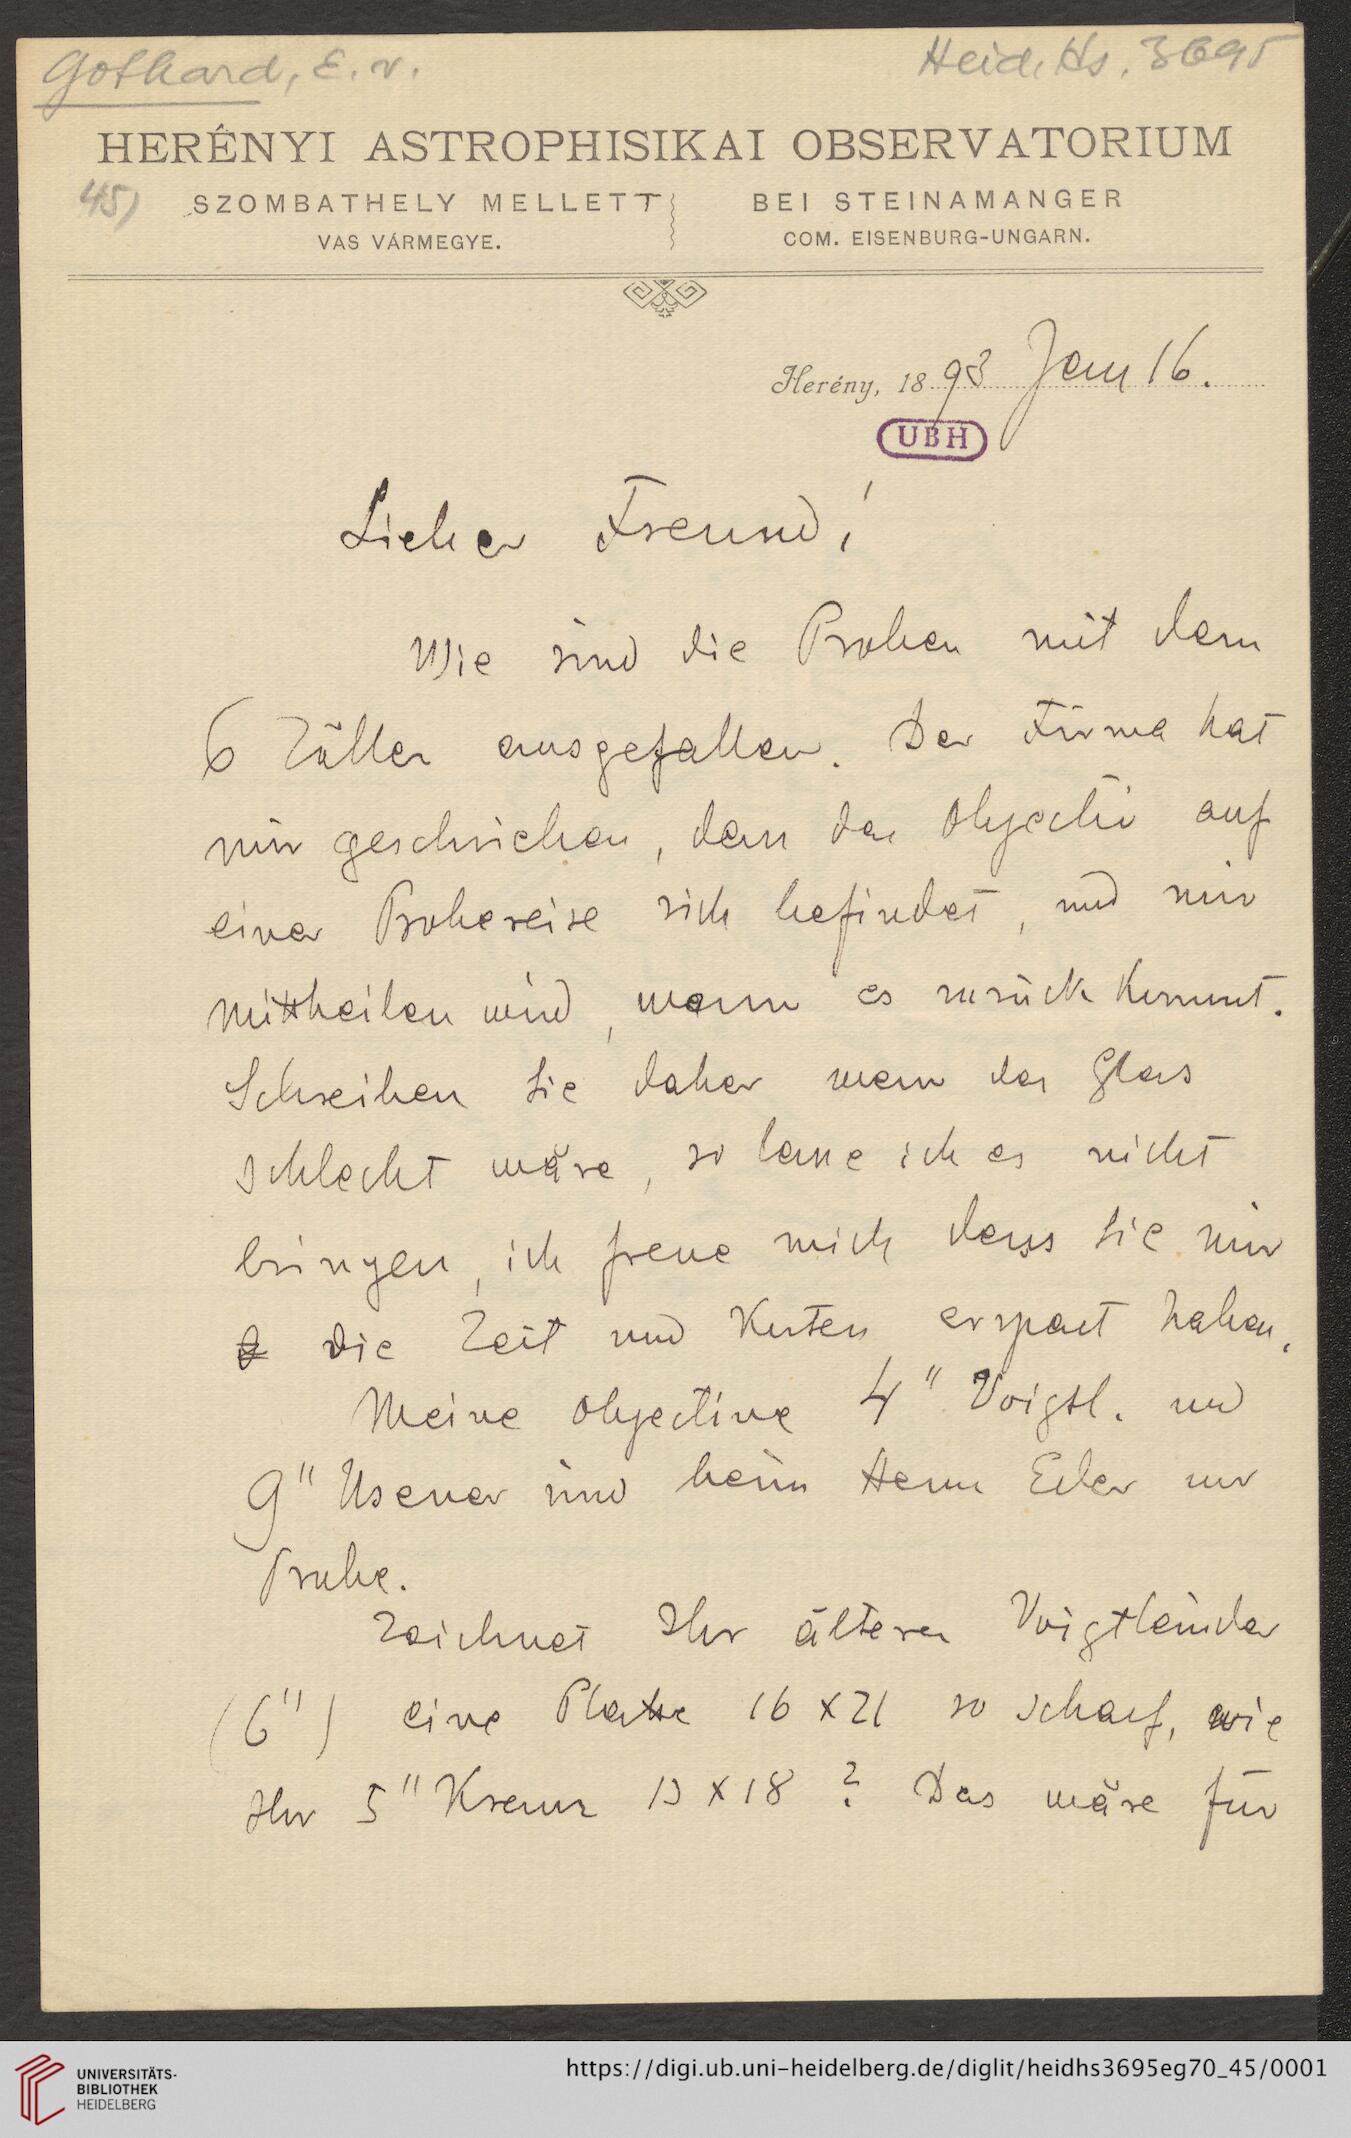 Gothard, E. v.
Heid. Hs. 3695
HERÉNYI ASTROPHISIKAI OBSERVATORIUM
45)
SZOMBATHELY MELLETT
VAS VÁRMEGYE.
BEI STEINAMANGER
COM. EISENBURG-UNGARN.
Herény, 1893 Jan 16.
UBH
Lieber Freund!
Wie sind die Proben mit dem
6 Zöller ausgefallen. Der Firma hat
mir geschrieben, dass das Objectiv auf
einer Probereise sich befindet, und mir
mittheilen wird, wann es zurück kommt.
Schreiben Sie daher wenn das Glas
schlecht wäre, so lasse ich es nicht
bringen, ich freue mich dass Sie mir
die Zeit und Kosten erspart haben.
Meine Objective 4" Voigtl. und
9" Usener sind beim Herrn Eder zur
Probe.
Zeichnet Ihr älterer Voigtländer
(6") eine Platte 16 x 21 so scharf, wie
Ihr 5" Kranz 13 x 18? Das wäre für
UNIVERSITÄTS-
BIBLIOTHEK
HEIDELBERG
https://digi.ub.uni-heidelberg.de/diglit/heidhs3695eg70_45/0001